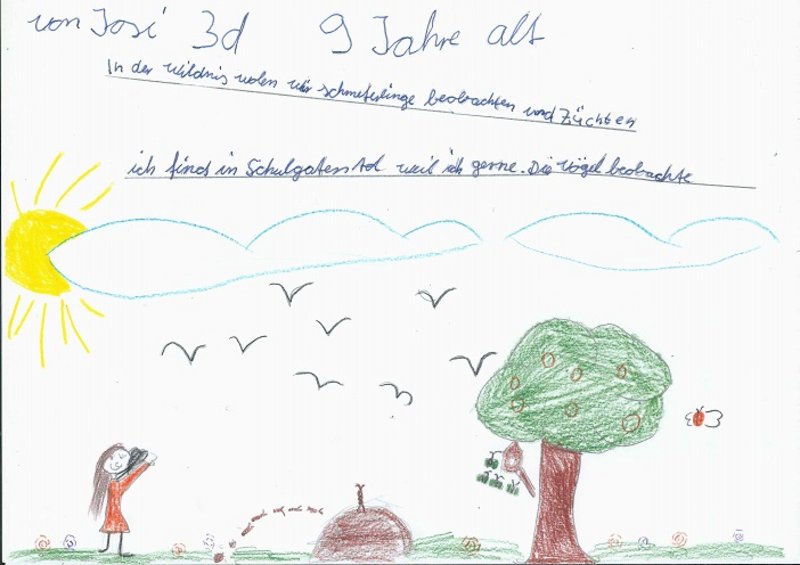 von José 3d 9 Jahre alt
In der wildnis wolen wir schmeterlinge beobachten und Züchten
ich find in Schulgaten tol weil ich gerne. Die Vögel beobachte